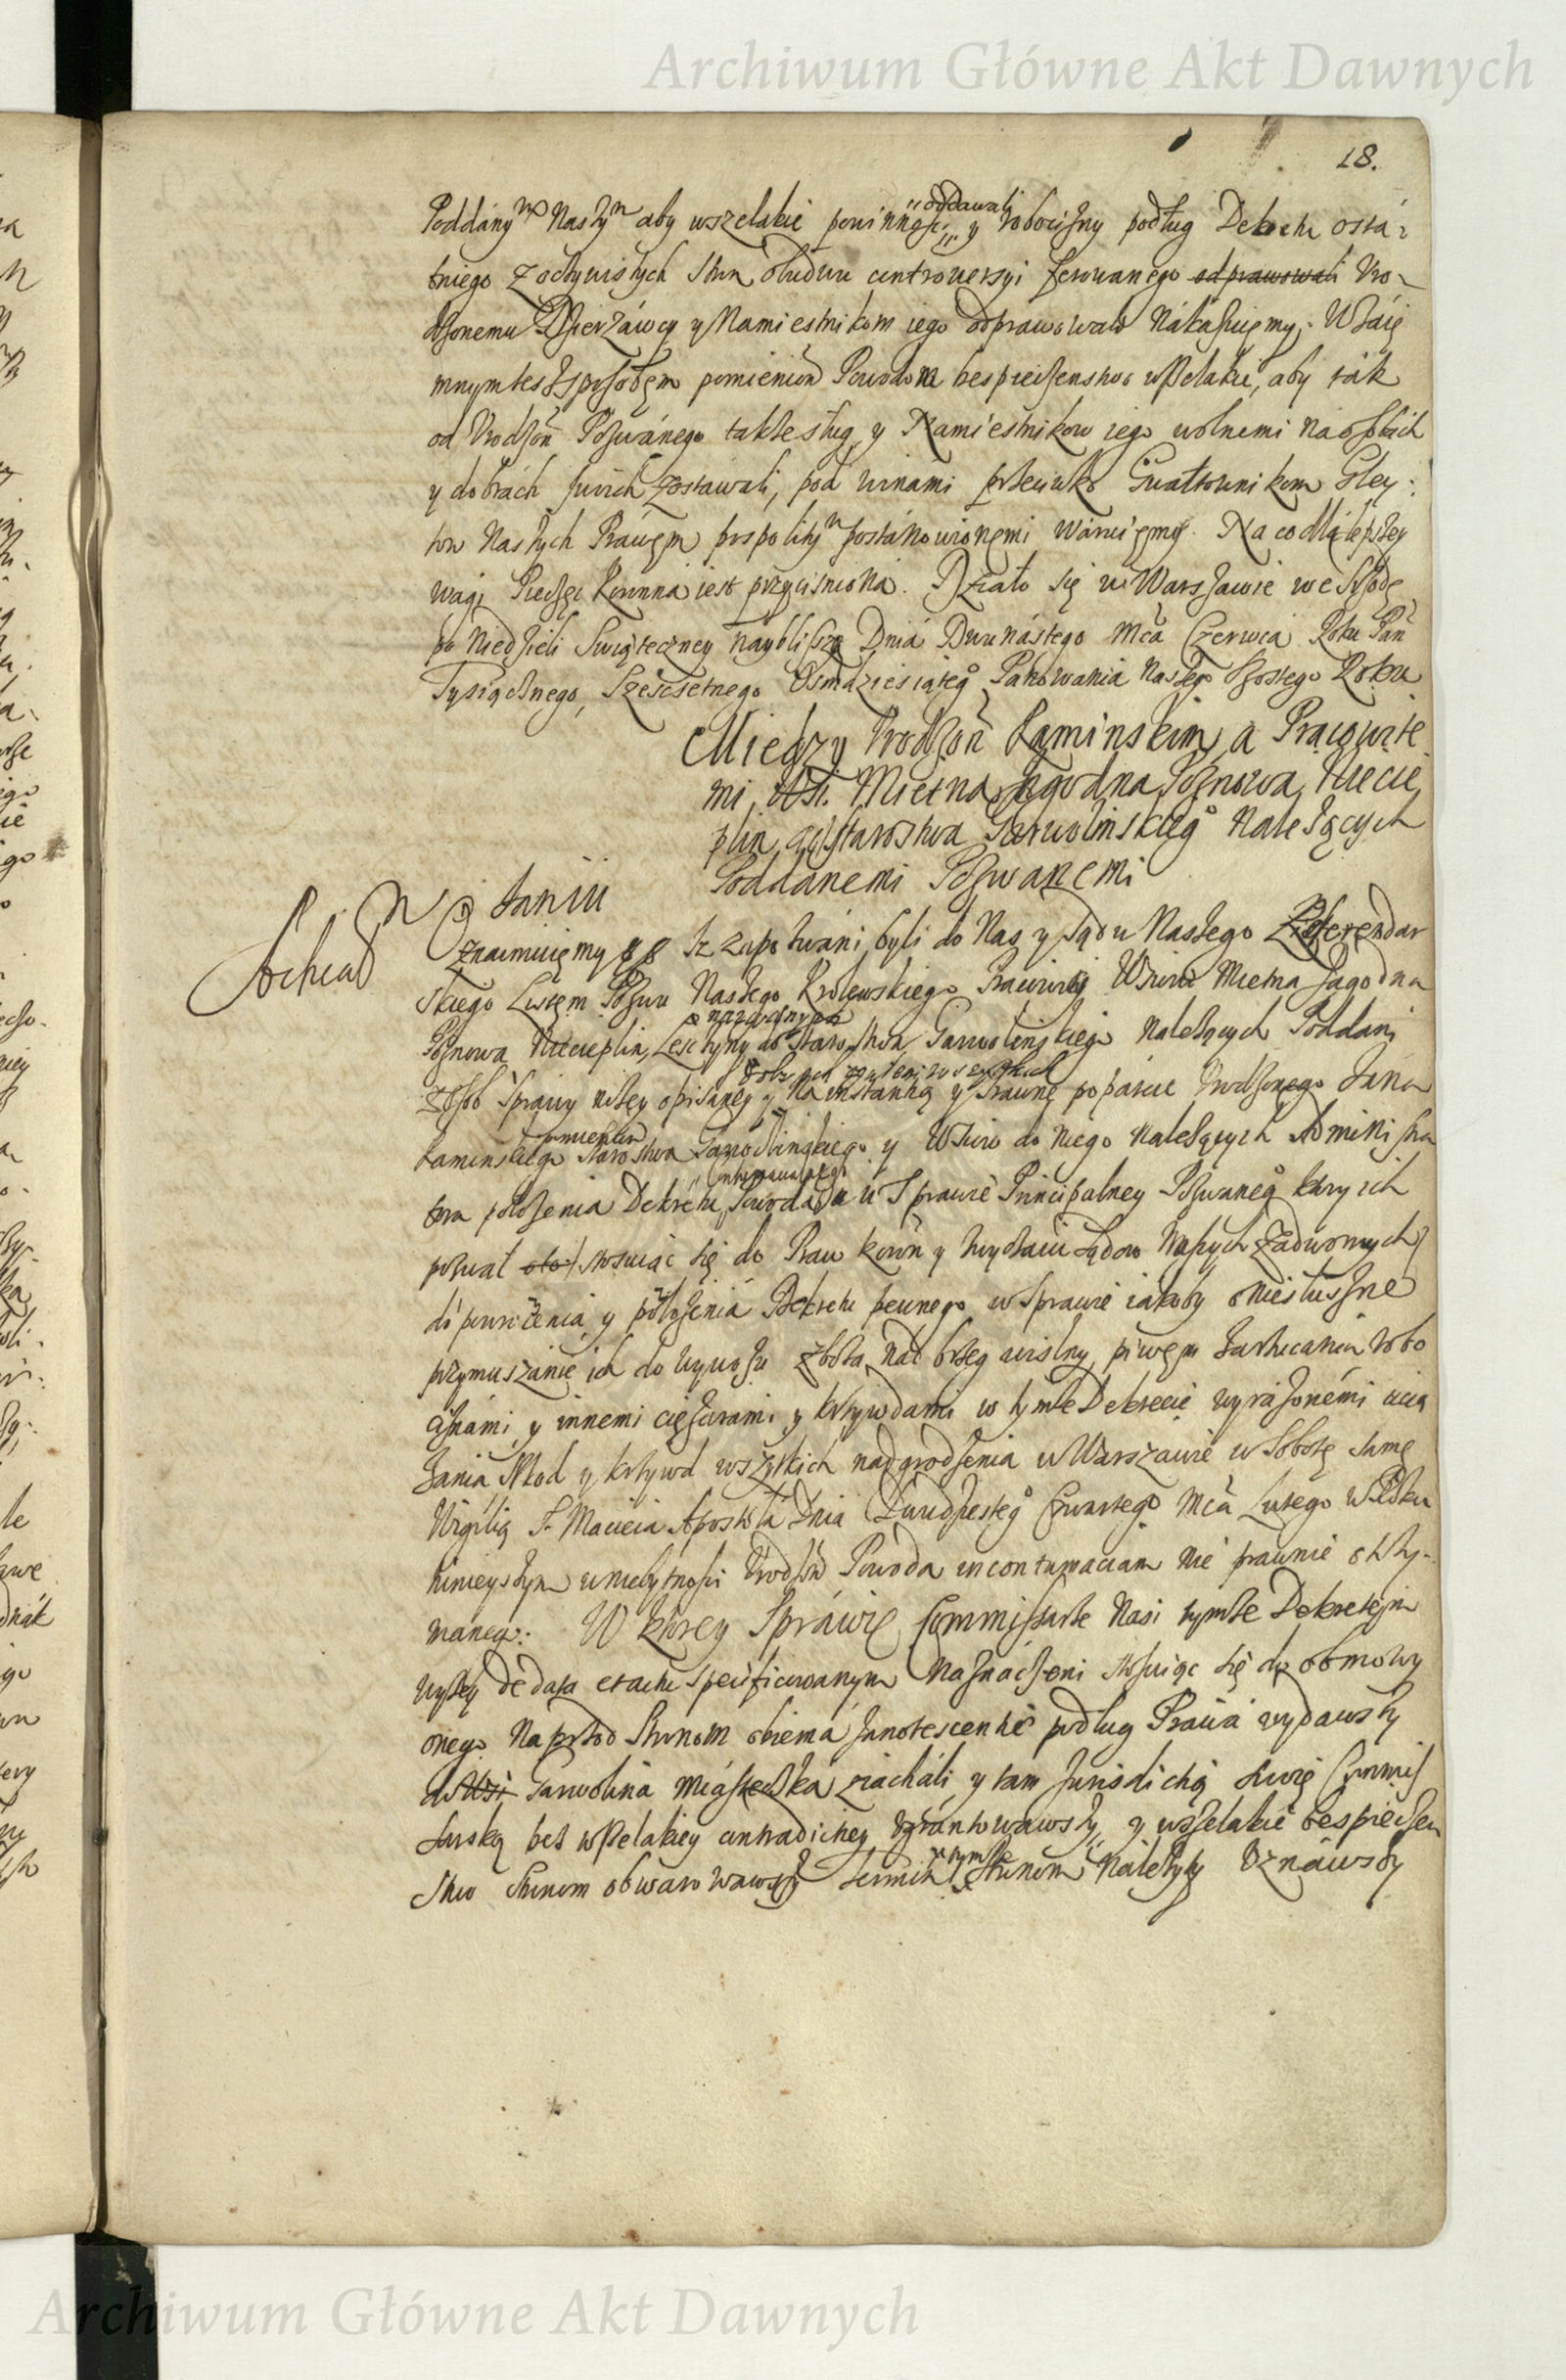 Archiwum Główne Akt Dawnych
18.
Poddánym Naszym aby wszelakie powinnosci oddawali y robocizny podług Dekretu ostá-
tniego z oczywistych Stron obudwu controversyi ferowanego odprawowali Vro-
dzonemu Dzierzáwcy y Namiestnikom iego odprawowali Nákazuięmy. Wzaię
mnym tesz sposobęm pomienion Powodom bespieczenstwo wszelakie, aby ták
od Vrodzon Pozwánego takze sług y Namiestnikow iego wolnemi na osobách
y dobrách swoich zostawali, pod winámi przeciwko Gwałtownikom Gley-
tow Naszych Práwęm pospolitym postánowionęmi wáruięmy. Na co dla lepszey
wagi Pieczęć Koronna iest przyciśniona. Działo się w Warszawie we Srzodę
po Niedzieli Swiąteczney naybliszą Dniá Dwunástego Mcá Czerwca Roku Pań
Tysiącznego, Szescsetnego Osmdziesiątego Panowania Naszego Szostego Roku
Między Vrodzon Kaminskim a Pracowite
mi Wsi Miętna Jagodna Roznowa Niecie
plin do Starostwa Garwolinskiego Należących
Poddanemi Pozwanemi
Jan III
Oznaimuięmy Iz zapozwáni byli do Nas y Sądu Naszego Referendar
skiego Listęm Pozwu Naszego Krolewskiego Pracowici Wsiow Mietna Jagodna
nazwanych
Niecieplin, Lesczyny do Starostwa Garwolinskiego należących Poddani
z osob Sprawy niżey opisaney y Na instantią y Prawne poparcie Vrodzonego Jana
Kaminskiego Starostwa Garwolinskiego y Wsiow do niego należących Administra
tora położenia Dekretu Powoda a w Sprawie Principalney Pozwanego ktory ich
pozwał stosuiąc się do Praw Koron y zwyczaiu Sądow Naszych Zadwornych
do powrocenia y położenia Dekretu pewnego w Sprawie iakoby o niesłuszne
przymuszanie ich do wywozu zboża nad brzeg wislny, piwęm robo
ciznami y innemi ciężarami y krzywdami w tymże Dekrecie wyrażonémi ucią
żania Szkod y krzywd wszytkich nadgrodzenia w Warszawie w Sobotę samę
Wigilią S. Macieia Apostoła Dnia Dwudziestego Czwartego Mcá Lutego w Roku
ninieyszym w niebytnosci Vrodzon Powoda in contumaciam nie prawnie otrzy-
manego. W ktorey Spráwie Commissarze Nasi tymże Dekretęm
wyżey de data et actu specificowanym Naznáczeni stosuiąc się do obmowy
onego Naprzod Stronom obiema Innotescentie podług Prawa wydawszy
do Wsi Garwolina Miásteczka ziacháli y tam Jurisdictią swoię Commis
sarską bez wszelakiey contradictiey vgruntowawszy y wszelakie bespieczen
stwo Stronom obwarowawszy termin tymże Stronom należyty Vznáwszy
Archiwum Główne Akt Dawnych